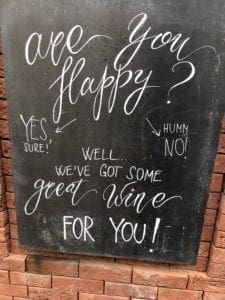 are you
Happy?
YES, HUMM...
SURE! NO!
WELL...
WE'VE GOT SOME
great wine
FOR YOU!